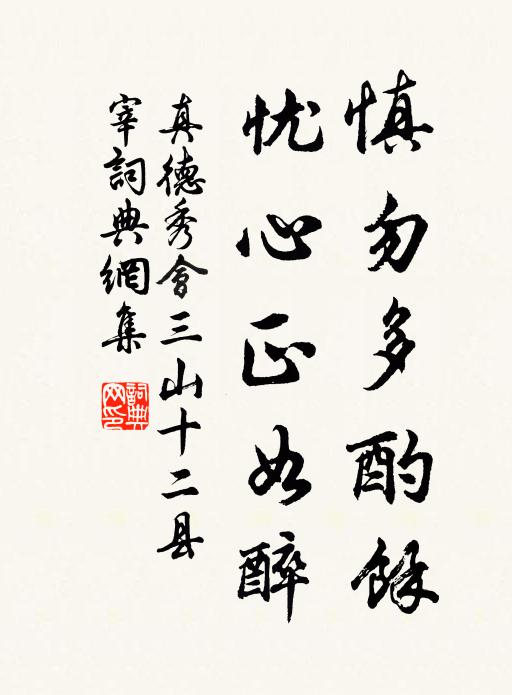 慎勿多酌餘
忧心正如醉
真德秀會三山十二县
宰詞典網集
詞典网印